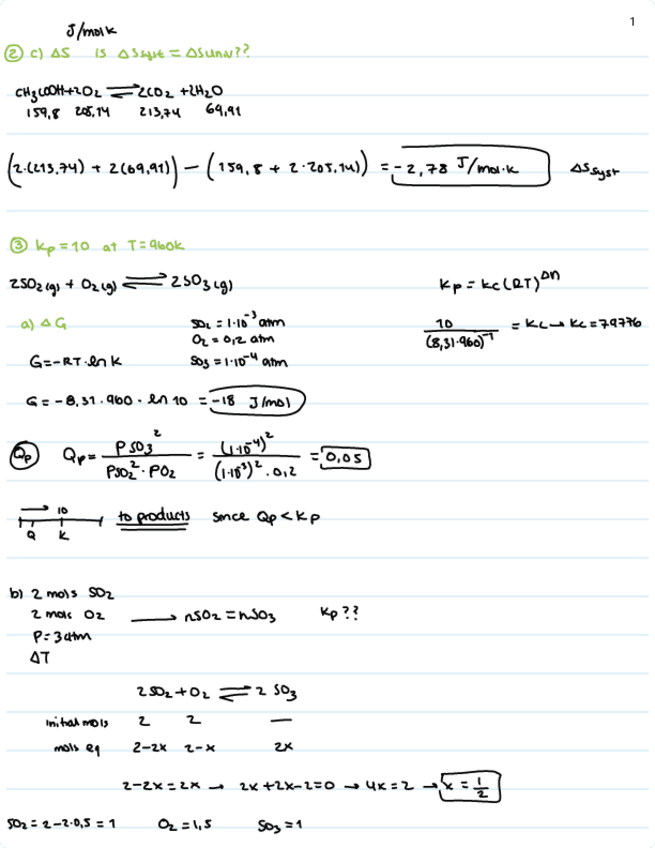 1
J/molk
② c) ΔS is ΔSsyst = ΔSuniv??
CH3COOH + 2O2 ⇌ 2CO2 + 2H2O
159,8 205,14 213,74 69,91
(2·(213,74) + 2(69,91)) − (159,8 + 2·205,14) = −2,78 J/mol·k ΔSsyst
③ kp = 10 at T = 960k
2SO2(g) + O2(g) ⇌ 2SO3(g) kp = kc(RT)^Δn
a) ΔG SO2 = 1·10^-3 atm 10/(8,31·960)^-1 = kc → kc = 79776
O2 = 0,2 atm
G = −RT·ln K SO3 = 1·10^-4 atm
G = −8,31·960·ln 10 = −18 J/mol
Qp Qp = PSO3^2/(PSO2^2·PO2) = (1·10^-4)^2/((1·10^3)^2·0,2) = 0,05
→ 10 to products since Qp < kp
Q K
b) 2 mols SO2
2 mols O2 → nSO2 = nSO3 kp??
P = 3 atm
ΔT
2SO2 + O2 ⇌ 2 SO3
initial mols 2 2 —
mols eq 2−2x 2−x 2x
2−2x = 2x → 2x+2x−2=0 → 4x = 2 → x = 1/2
SO2 = 2−2·0,5 = 1 O2 = 1,5 SO3 = 1